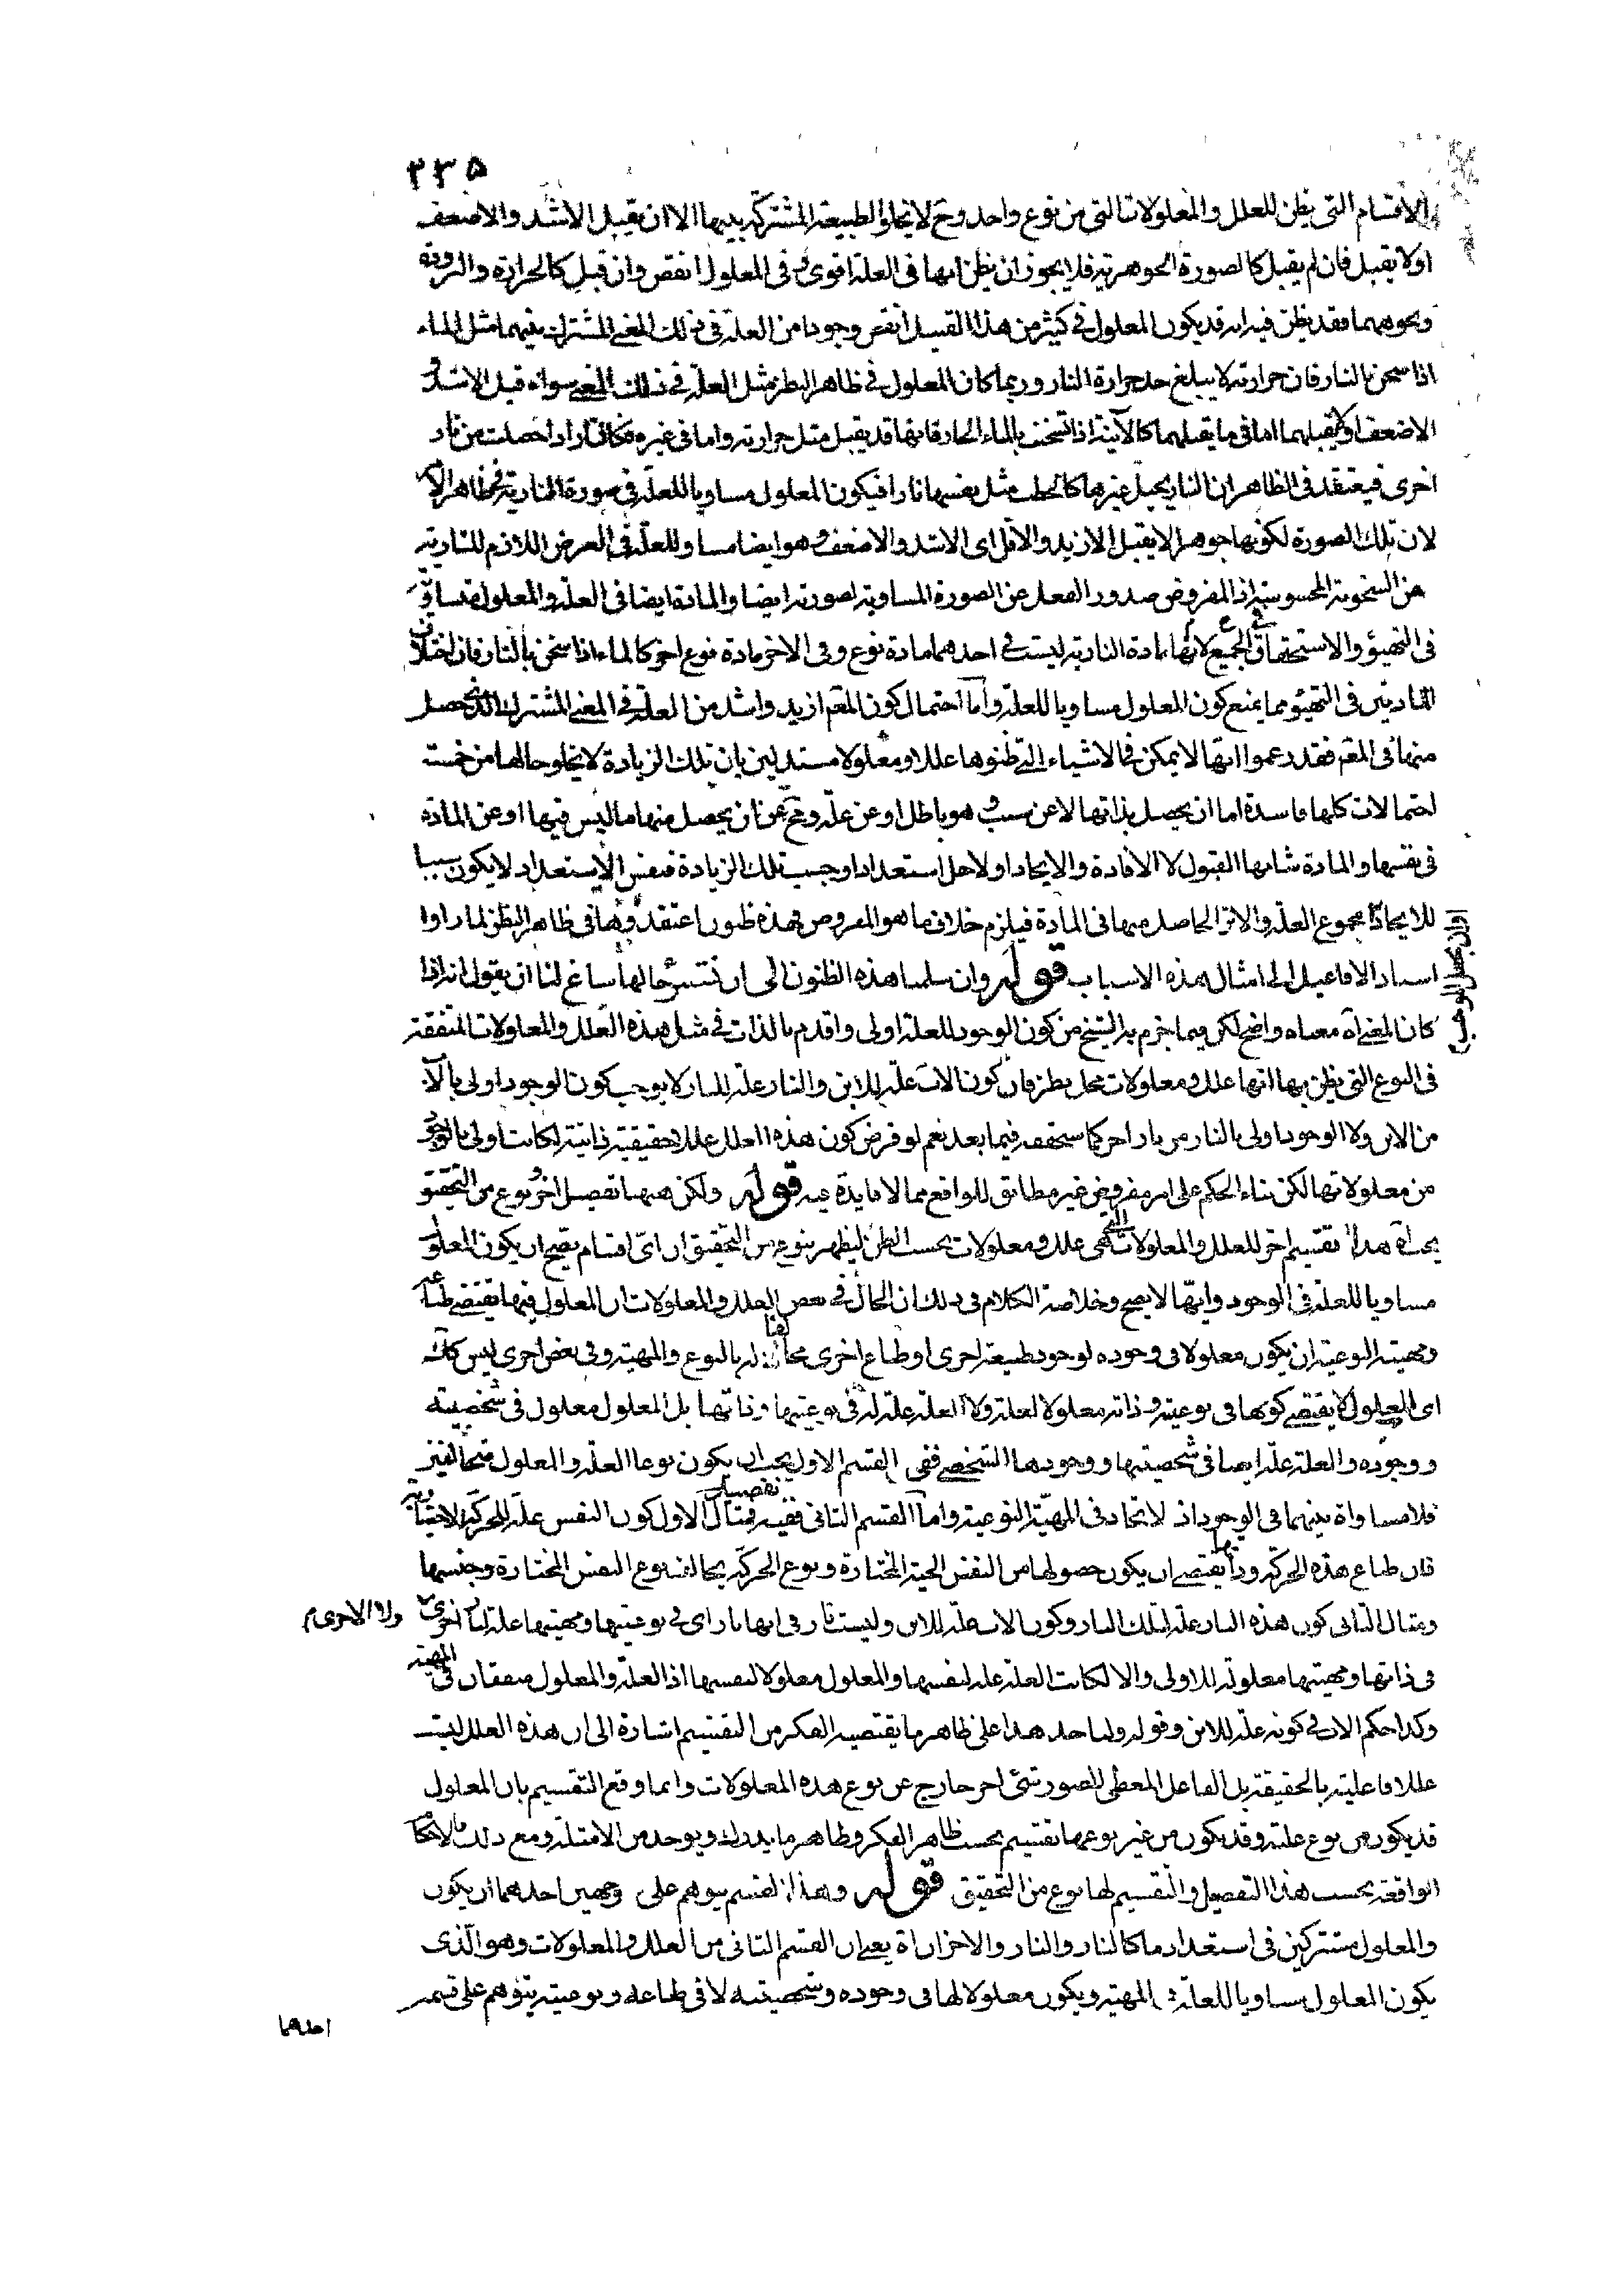 ٢٣٥
الاقسام التى يظن للعلل والمعلولات التى من نوع واحد وح لا يخلو الطبيعة المشتركة بينهما الا ان يقبل الاشد والاضعف
اولا يقبل فان لم يقبل كالصورة الجوهرية فلا يجوز ان يظن انها فى العلة اقوى وفى المعلول انقص وان قبل كالحرارة والبرودة
ونحوهما فقد يظن فيه انه قد يكون المعلول فى كثير من هذا القبيل انقص وجودا من العلة فى ذلك المعنى المشترك بينهما مثل الماء
اذا سخن بالنار فان حرارته لا يبلغ حد حرارة النار وربما كان المعلول فى ظاهر النظر مثل العلة فى ذلك المعنى سواء قبل الاشد و
الاضعف او لا يقبلهما اما فى ما يقبلهما كالآنية اذا تسخنت بالماء الحار فانها قد يقبل مثل حرارته واما فى غيره فكالنار اذا حصلت من نار
اخرى فيعتقد فى الظاهر ان النار يحيل غيرها كالحطب مثل نفسها نارا فيكون المعلول مساويا للعلة فى صورة النارية فى ظاهر الامر
لان تلك الصورة لكونها جوهرا لا يقبل الازيد والاقل اى الاشد والاضعف وهو ايضا مساو للعلة فى العرض اللازم للنارية
من السخونة المحسوسة اذ المفروض صدور الفعل عن الصورة المساوية لصورته ايضا والمادة ايضا فى العلة والمعلول متساوية
فى التهيؤ والاستحقاق فى الجميع لانها مادة النارية ليست فى احدهما مادة نوع وفى الاخر مادة نوع اخر كالماء اذا سخن بالنار فان اختلاف
المادتين فى التهيؤ مما يمنع كون المعلول مساويا للعلة واما احتمال كون المعم ازيد واشد من العلة فى المعنى المشترك الذى حصل
منها فى المعم فقد زعموا انها لا يمكن فى الاشياء التى ظنوها عللا ومعلولا مستدلين بان تلك الزيادة لا يخلو حالها من خمسة
احتمالات كلها فاسدة اما ان يحصل بذاتها لا عن سبب وهو باطل او عن علة ومح عن ان يحصل منها ما ليس فيها او عن المادة
فى نفسها والمادة شانها القبول لا الافادة والايجاد او لاجل استعداد اوجب تلك الزيادة فنفس الاستعداد لا يكون سببا
للايجاد مجموع العلة والاثر الحاصل منها فى المادة فيلزم خلاف ما هو المفروض فهذه ظنون اعتقدوها فى ظاهر النظر لما راوا
اسناد الافاعيل الى امثال هذه الاسباب قوله وان سلمنا هذه الظنون الى ان نستبرئ حالها ساغ لنا ان يقول انه اذا
كان المعنى آه معناه واضح لكن فيما جزم به الشيخ من كون الوجود للعلة اولى واقدم بالذات فى مثل هذه العلل والمعلولات المتفقة
فى النوع التى يظن بها انها علل ومعلولات محل نظر فان كون الاب علة للابن والنار علة للنار لا يوجب كون الوجود اولى بالاب
من الابن ولا الوجود اولى بالنار من نار اخر كما سنحققه فيما بعد نعم لو فرض كون هذه العلل عللا حقيقية ذاتية لكانت اولى بالوجود
من معلولاتها لكن بناء الحكم على امر مفروض غير مطابق للواقع مما لا فايدة فيه قوله ولكن ههنا تفصيل اخر ونوع من التحقيق
يجب آه هذا تقسيم اخر للعلل والمعلولات التى هى علل ومعلولات بحسب الظن ليظهر بنوع من التحقيق ان اى اقسام يصح ان يكون المعلول
مساويا للعلة فى الوجود وايها لا يصح وخلاصة الكلام فى ذلك ان الحال فى بعض العلل والمعلولات ان المعلول فيها يقتضى طباعه
ومهيته النوعية ان يكون معلولا فى وجوده لوجود طبيعة اخرى او طباع اخرى مخالفة له بالنوع والمهية وفى بعض اخرى ليس كذلك
اى المعلول لا يقتضى كونها فى نوعيته وذاته معلولا لعلته ولا العلة علة له فى نوعيتها وذاتها بل المعلول معلول فى شخصيته
ووجوده والعلة علة ايضا فى شخصيتها ووجودها الشخصى ففى القسم الاول يجب ان يكون نوعا العلة والمعلول متخالفين
فلا مساواة بينهما فى الوجود اذ لا اتحاد فى المهية النوعية واما القسم الثانى ففيه تفصيل فمثال الاول كون النفس علة للحركة الاختيارية
فان طباع هذه الحركة وذاتها يقتضى ان يكون حصولها من النفس الحية المختارة ونوع الحركة يخالف نوع النفس المختارة وجنسها
ومثال الثانى كون هذه النار علة لتلك النار وكون الاب علة للابن وليست نار فى انها نار اى فى نوعيتها ومهيتها علة لنار اخرى ولا الاخرى م
فى ذاتها ومهيتها معلولة للاولى والا لكانت العلة علة لنفسها والمعلول معلولا لنفسها اذ العلة والمعلول متفقان فى المهية
وكذا حكم الاب فى كونه علة للابن وقوله ولما حد هذا على ظاهر ما يقتضيه الفكر من التقسيم اشارة الى ان هذه العلل ليست
عللا فاعلية بالحقيقة بل الفاعل المعطى للصور شئ اخر خارج عن نوع هذه المعلولات وانما وقع التقسيم بان المعلول
قد يكون من نوع علته وقد يكون من غير نوعها تقسيم بحسب ظاهر الفكر وظاهر ما يدرك ويوجد من الامثلة ومع ذلك فالاحكام
الواقعة بحسب هذا التفصيل والتقسيم لها نوع من التحقيق قوله وهذا القسم يتوهم على وجهين احدهما ان يكون
والمعلول مشتركين فى استعداد ما كالنار والنار والاخر ان آه يعنى ان القسم الثانى من العلل والمعلولات وهو الذى
يكون المعلول مساويا للعلة فى المهية ويكون معلولا لها فى وجوده وشخصيته لا فى طباعه ونوعيته يتوهم على قسمين
احدهما